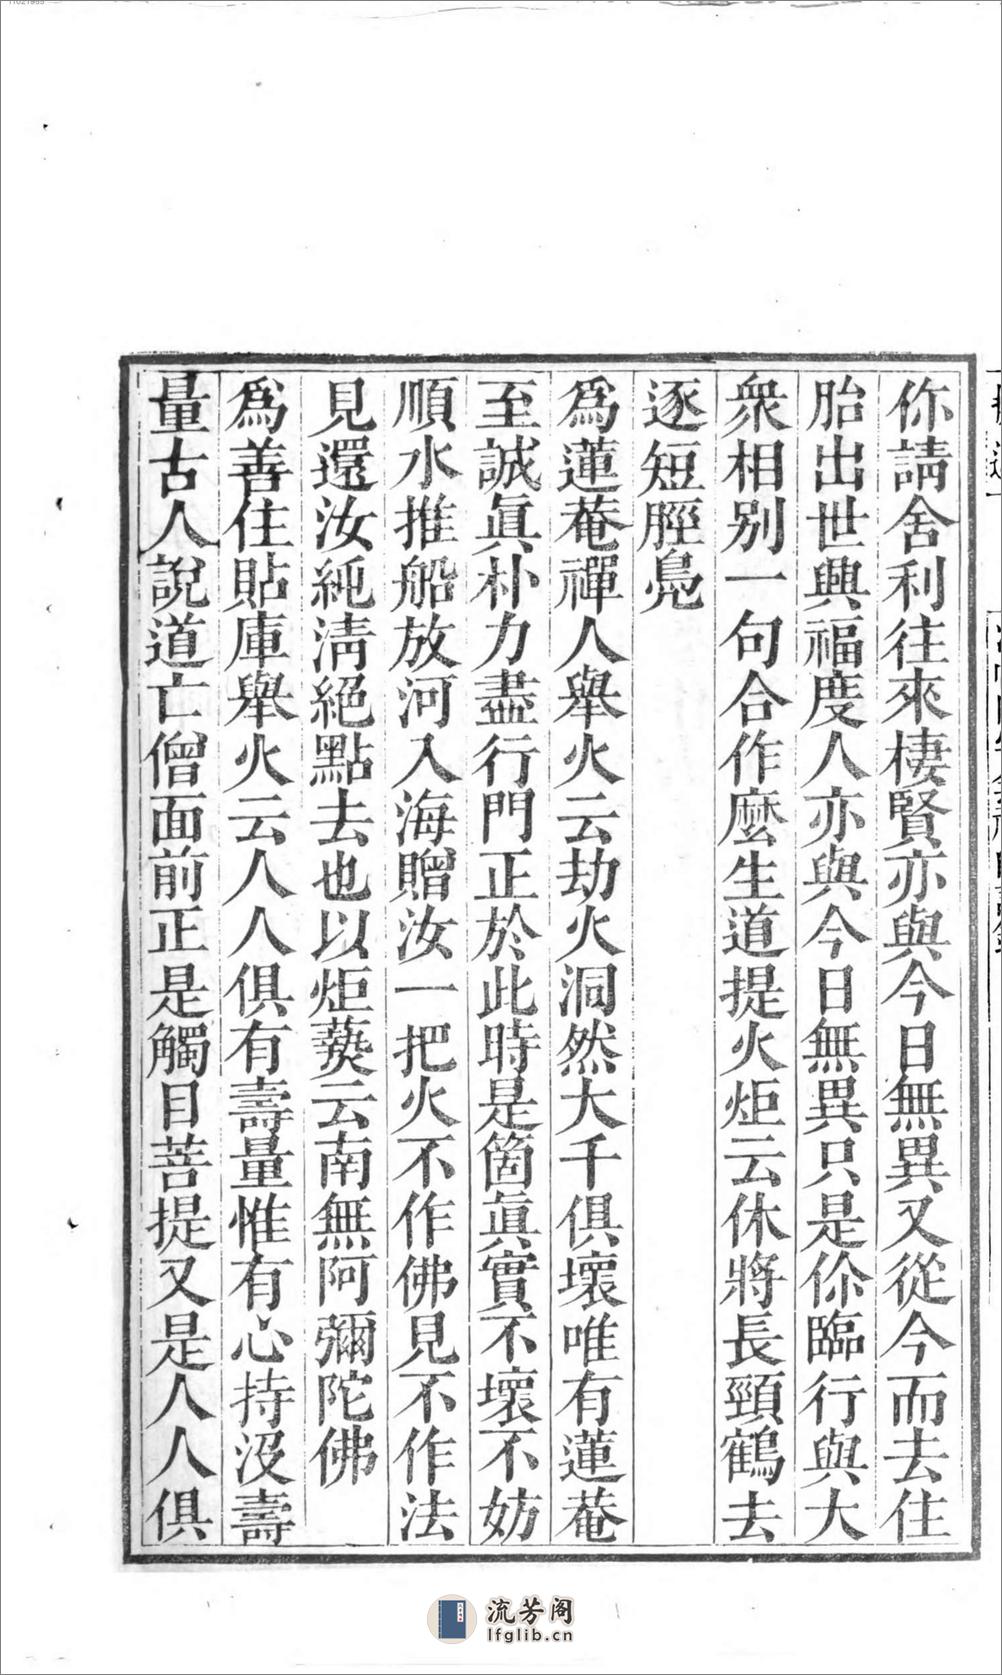 你請舍利往來棲賢亦與今日無異又從今而去住
胎出世興福度人亦與今日無異只是你臨行與大
衆相别一句合作麼生道提火炬云休將長頸鶴去
逐短脛鳧
爲蓮菴禪人舉火云劫火洞然大千俱壞唯有蓮菴
至誠眞朴力盡行門正於此時是箇眞實不壞不妨
順水推船放河入海贈汝一把火不作佛見不作法
見還汝純淸絕點去也以炬爇云南無阿彌陀佛
爲善住貼庫舉火云人人俱有壽量惟有心持沒壽
量古人說道亡僧面前正是觸目菩提又是人人俱
流芳阁
lfglib.cn
11021955